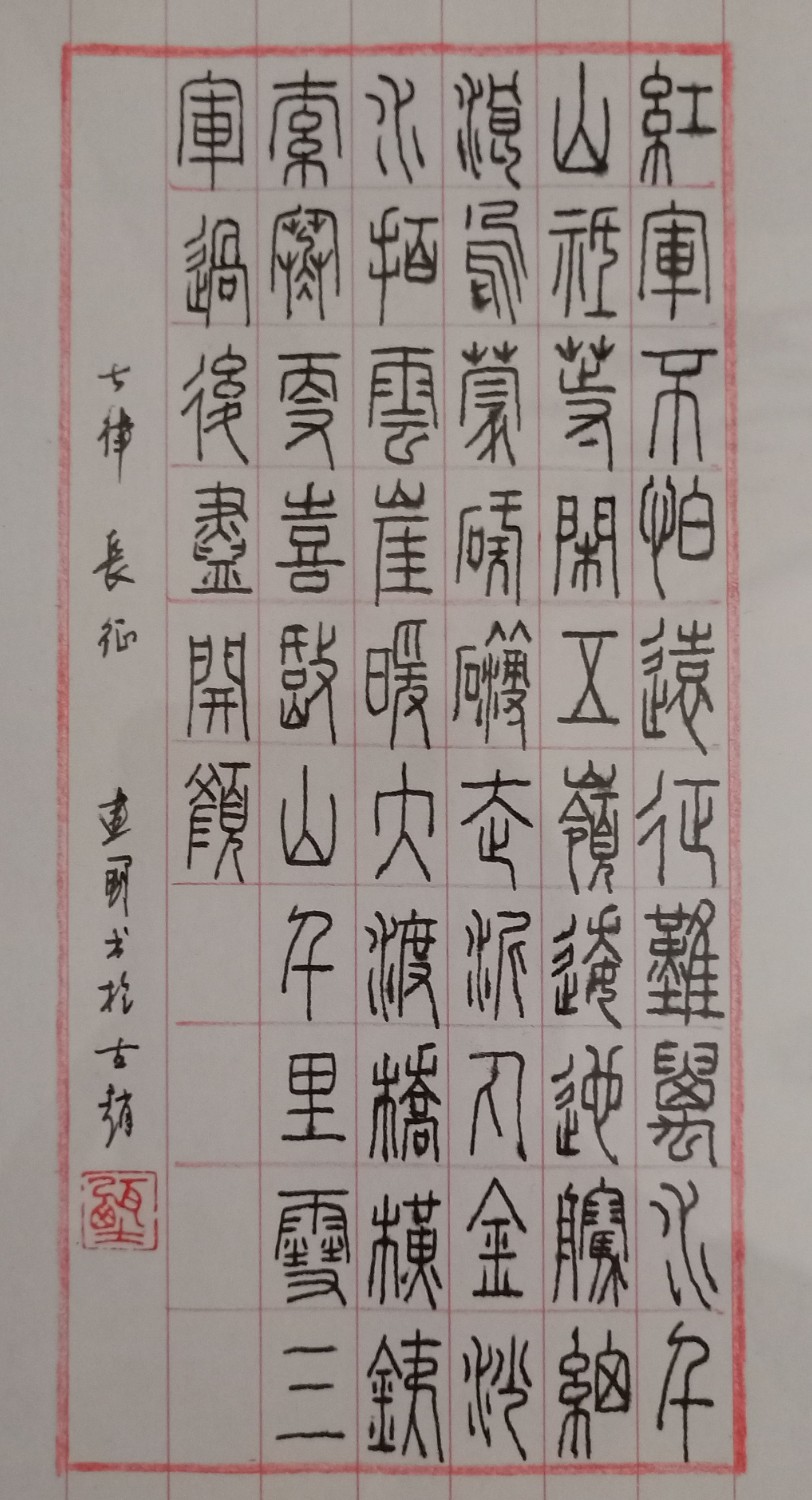 紅軍不怕遠征難萬水千
山祗等閑五嶺逶迤騰細
浪烏蒙磅礴走泥丸金沙
水拍雲崖暖大渡橋橫鐵
索寒更喜岷山千里雪三
軍過後盡開顏
七律 長征 书於古趙